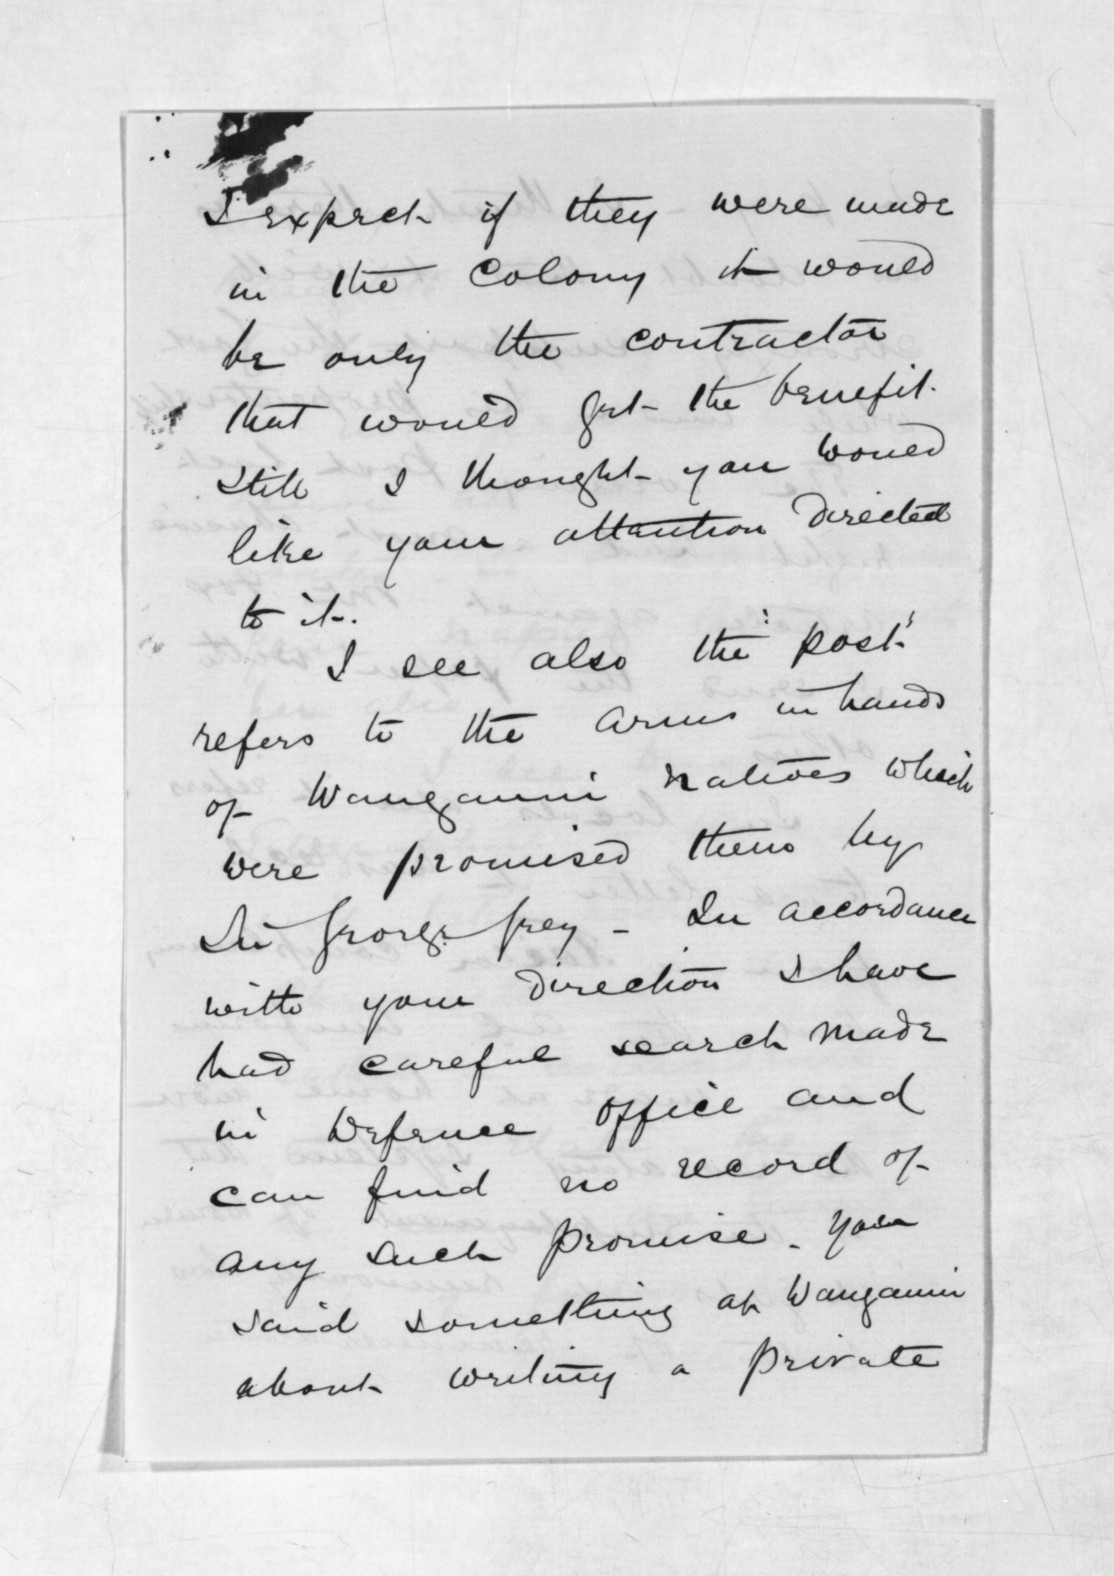 I expect if they were made
in the Colony it would
be only the contractor
that would get the benefit.
Still I thought you would
like your attention directed
to it.
I see also the "post"
refers to the arms in hands
of Wanganui natives which
were promised them by
Sir George Grey - In accordance
with your direction I have
had careful search made
in Defence Office and
can find no record of
any such promise. You
said something at Wanganui
about writing a private